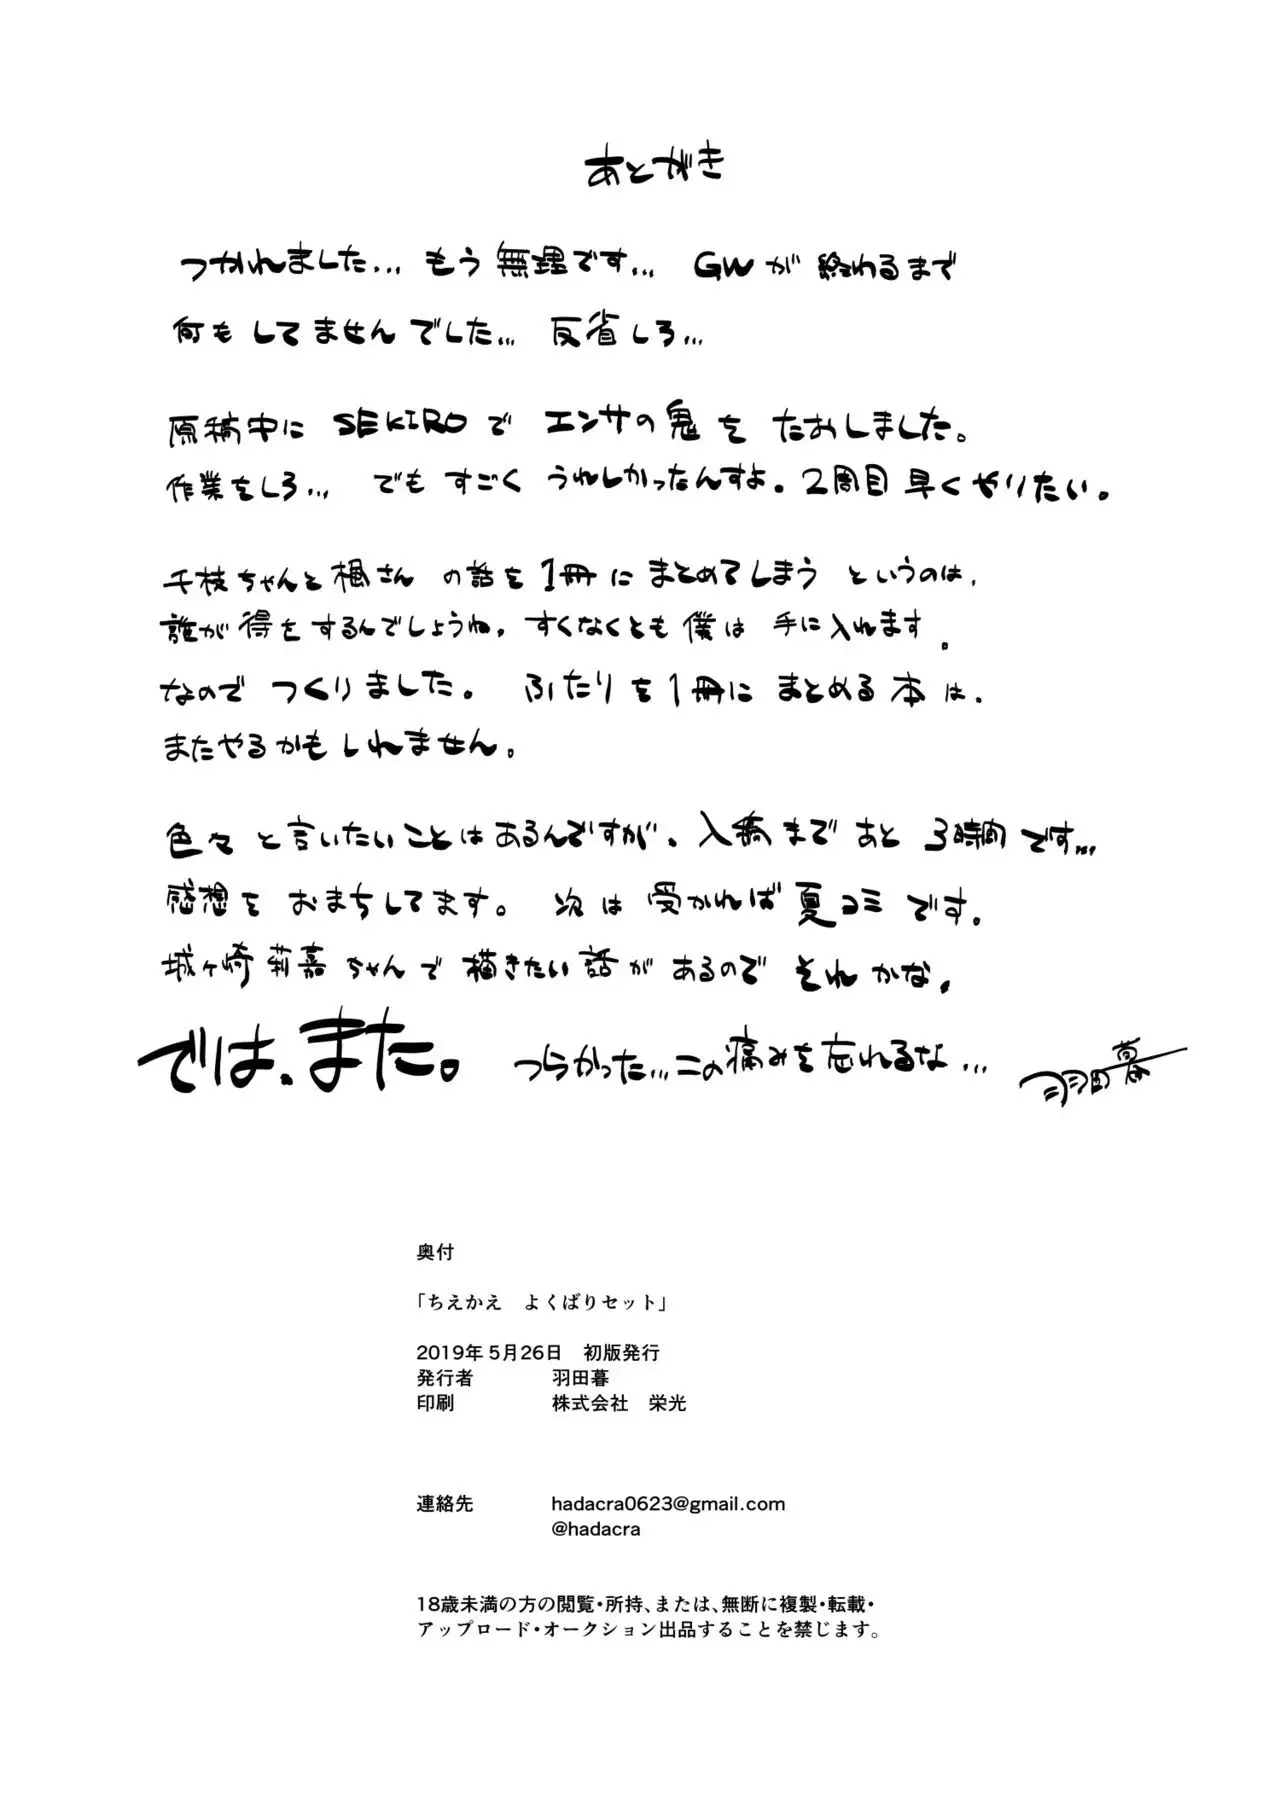 あとがき
つかれました... もう無理です... GWが終わるまで
何もしてませんでした... 反省しろ...
原稿中にSEKIROでエンサの鬼をたおしました。
作業をしろ... でもすごくうれしかったんすよ。2周目早くやりたい。
千枝ちゃんと楓さんの話を1冊にまとめてしまうというのは、
誰が得をするんでしょうね、すくなくとも僕は手に入れます。
なのでつくりました。ふたりを1冊にまとめる本は、
またやるかもしれません。
色々と言いたいことはあるんですが、入稿まであと3時間です...
感想をおまちしてます。次は受かれば夏コミです。
城ヶ崎莉嘉ちゃんで描きたい話があるのでそれかな。
では、また。 つらかった...この痛みを忘れるな... 羽田暮
奥付
「ちえかえ　よくばりセット」
2019年5月26日　初版発行
発行者　羽田暮
印刷　株式会社　栄光
連絡先　hadacra0623@gmail.com
@hadacra
18歳未満の方の閲覧・所持、または、無断に複製・転載・
アップロード・オークション出品することを禁じます。